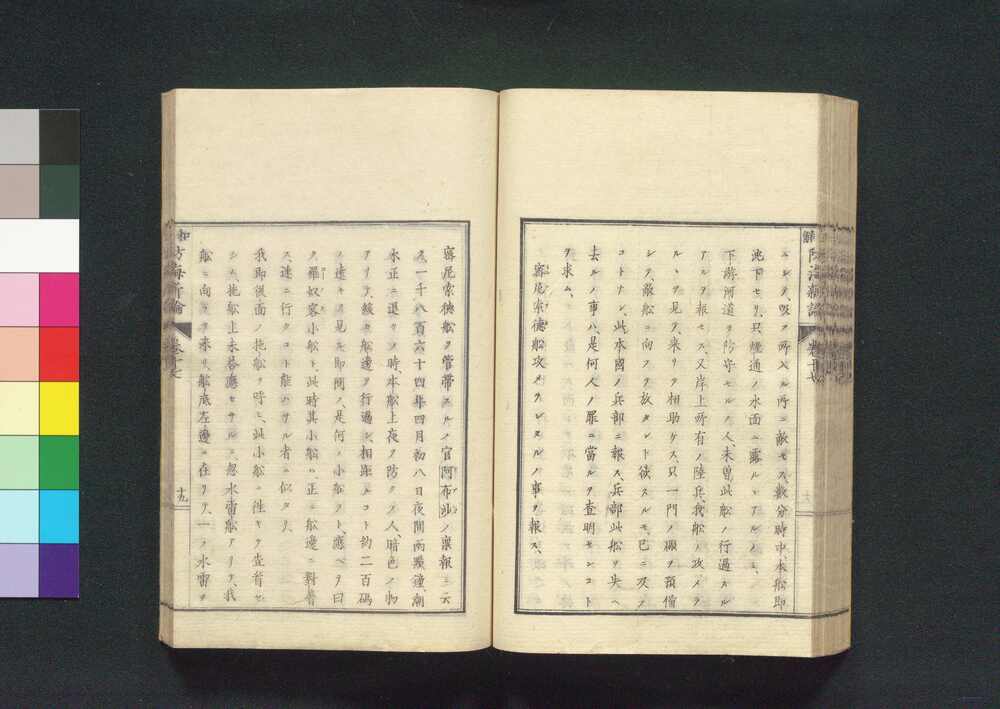 シテ、吸フ所入ル所ニ敵セス、數分時中、本船即
沈下セリ、只煙通ノ水面ニ露ルヽアルノミ、
下游河道ヲ防守セルノ人、未曽此船ノ行過スル
アルヲ報セス、又岸上所有ノ陸兵、我船ノ攻メラ
ルヽヲ見テ、来リテ相助ケス、只一門ノ礟ヲ預備
シテ、敵船ニ向フテ放タント欲スルモ、已ニ及フ
コトナシ、此本國ノ兵部ニ報ス、兵部此船ヲ失ヘ
去ルノ事ハ、是何人ノ罪ニ當ルヲ査明センコト
ヲ求ム、
密尼索德船攻メラレタルノ事ヲ報ス、
防海新論 巻十七
十九
密尼索德船ヲ管帶スルノ官阿布汕ノ稟報ニ云
ク一千八百六十四年四月初八日夜間兩點鐘、潮
水正ニ退クノ時、本船上夜ヲ防クノ人、暗色ノ物
アリテ、緩ク船邊ヲ行過シ、相距ルコト約二百碼
ノ遠キヲ見ル、即問フ、是何ノ小船ソト、應ヘテ曰
ク羅奴容小船ト、此時其小船ハ、正ニ船邊ニ對着
ス、速ニ行クコト能ハサル者ニ似タリ、
我即後面ノ拖船ヲ呼ヒ、此小船ニ往キテ査看セ
シム、拖船上未答應セサルニ、忽水雷船アリテ、我
船ニ向フテ来リ、船底左邊ニ在リテ、一ノ水雷ヲ